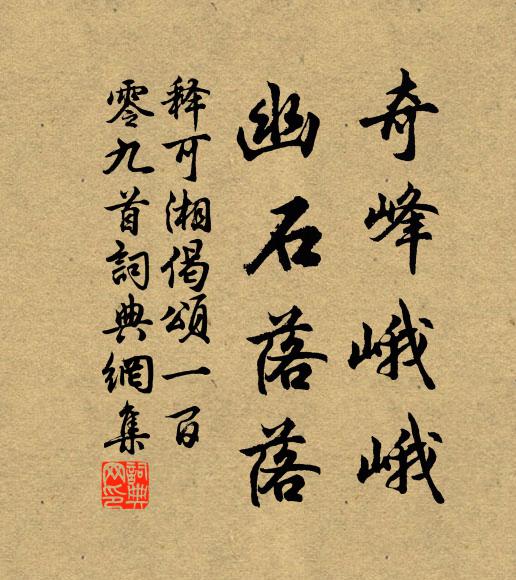 奇峰峨峨
幽石落落
释可湘偈頌一百
零九首詞典網集
詞典网印